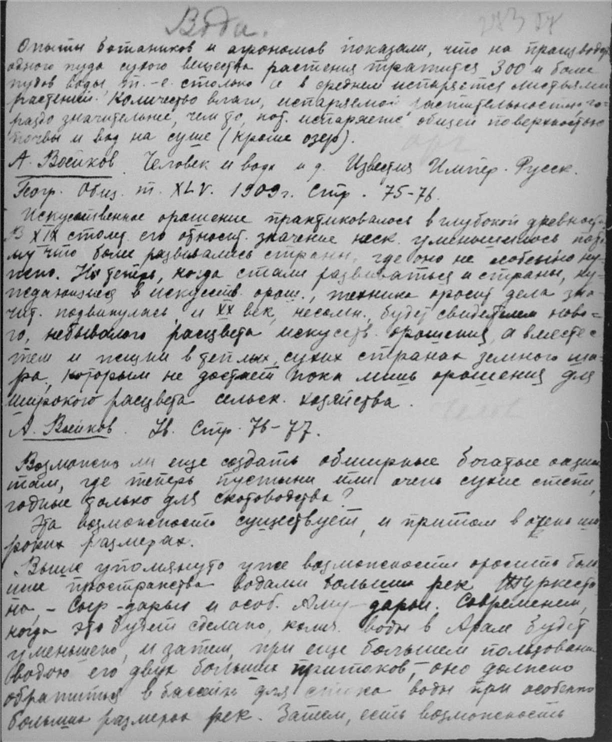 Вода.
Опыты ботаников и агрономов показали, что на производ.
одного пуда сухого вещества растения тратится 300 и более
пудов воды, т.-е. столько ее в среднем испаряется листьями
растений. Количество влаги, испаряемой растительностью го
раздо значительнее, чем то, кот. испаряется общей поверхностью
почвы и вод на суше (кроме озер).
А. Воейков. Человек и вода и д. Известия Импер. Русск.
Геогр. Общ. т. XLV. 1909 г. Стр. 75-76.
Искусственное орошение практиковалось в глубокой древност.
В XIX стол. его относит. значение неск. уменьшилось пот
му что более развивались страны, где оно не особенно ну
жно. Но теперь, когда стали развиваться и страны, ну-
ждающиеся в искусств. орош., техника оросит. дела зна-
чит. подвинулась, и XX век, несомн., будет свидетелем ново-
го, небывалого расцвета искусств. орошения, а вместе с
тем и жизни в теплых, сухих странах земного ша-
ра, которым не достает пока лишь орошения для
широкого расцвета сельск. хозяйства.
А. Воейков. Ів. Стр. 76-77.
Возможно ли еще создать обширные богатые оазисы
там, где теперь пустыни или очень сухие степи,
годные только для скотоводства?
Эта возможность существует, и притом в очень ши
роких размерах.
Выше упомянуто уже возможности оросить боль
шие пространства водами больших рек Туркеста
на - Сыр-дарьи и особ. Аму-дарьи. Современем,
когда это будет сделано, колич. воды в Арале будет
уменьшено, и затем, при еще большем пользовани
водою его двух больших притоков, - оно должно
обратиться в бассейн для стока воды при особенно
больших размерах рек. Затем, есть возможность